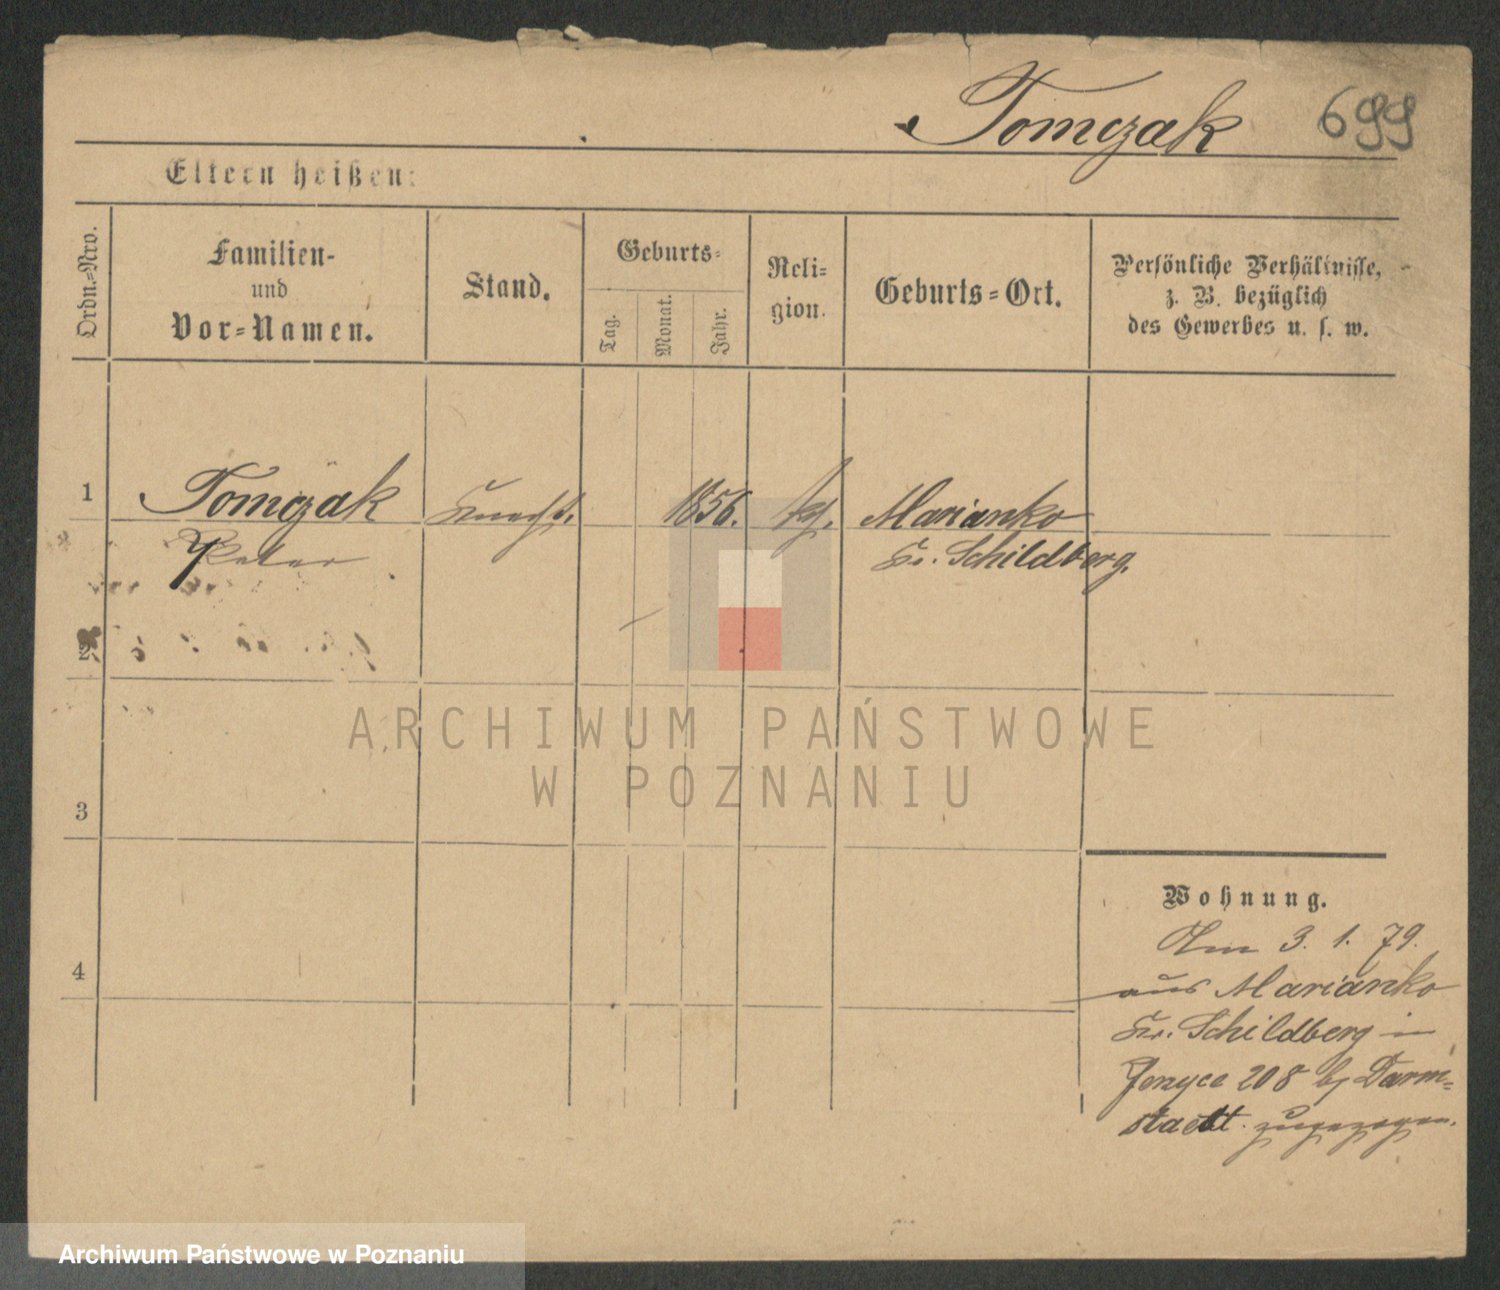 Tomczak 699
Eltern heißen:
Ordn.-Nro.
Familien-
und
Vor-Namen.
Stand.
Geburts-
Tag.
Monat.
Jahr.
Reli-
gion.
Geburts-Ort.
Persönliche Verhältnisse,
z. B. bezüglich
des Gewerbes u. s. w.
1
Tomczak
Peter
Knecht.
1856.
kt.
Marianko
Kr. Schildberg.
2
3
4
Wohnung.
Am 3. 1. 79.
aus Marianko
Kr. Schildberg in
Jerzyce 208 by Darm-
staedt zugezogen.
ARCHIWUM PAŃSTWOWE
W POZNANIU
Archiwum Państwowe w Poznaniu